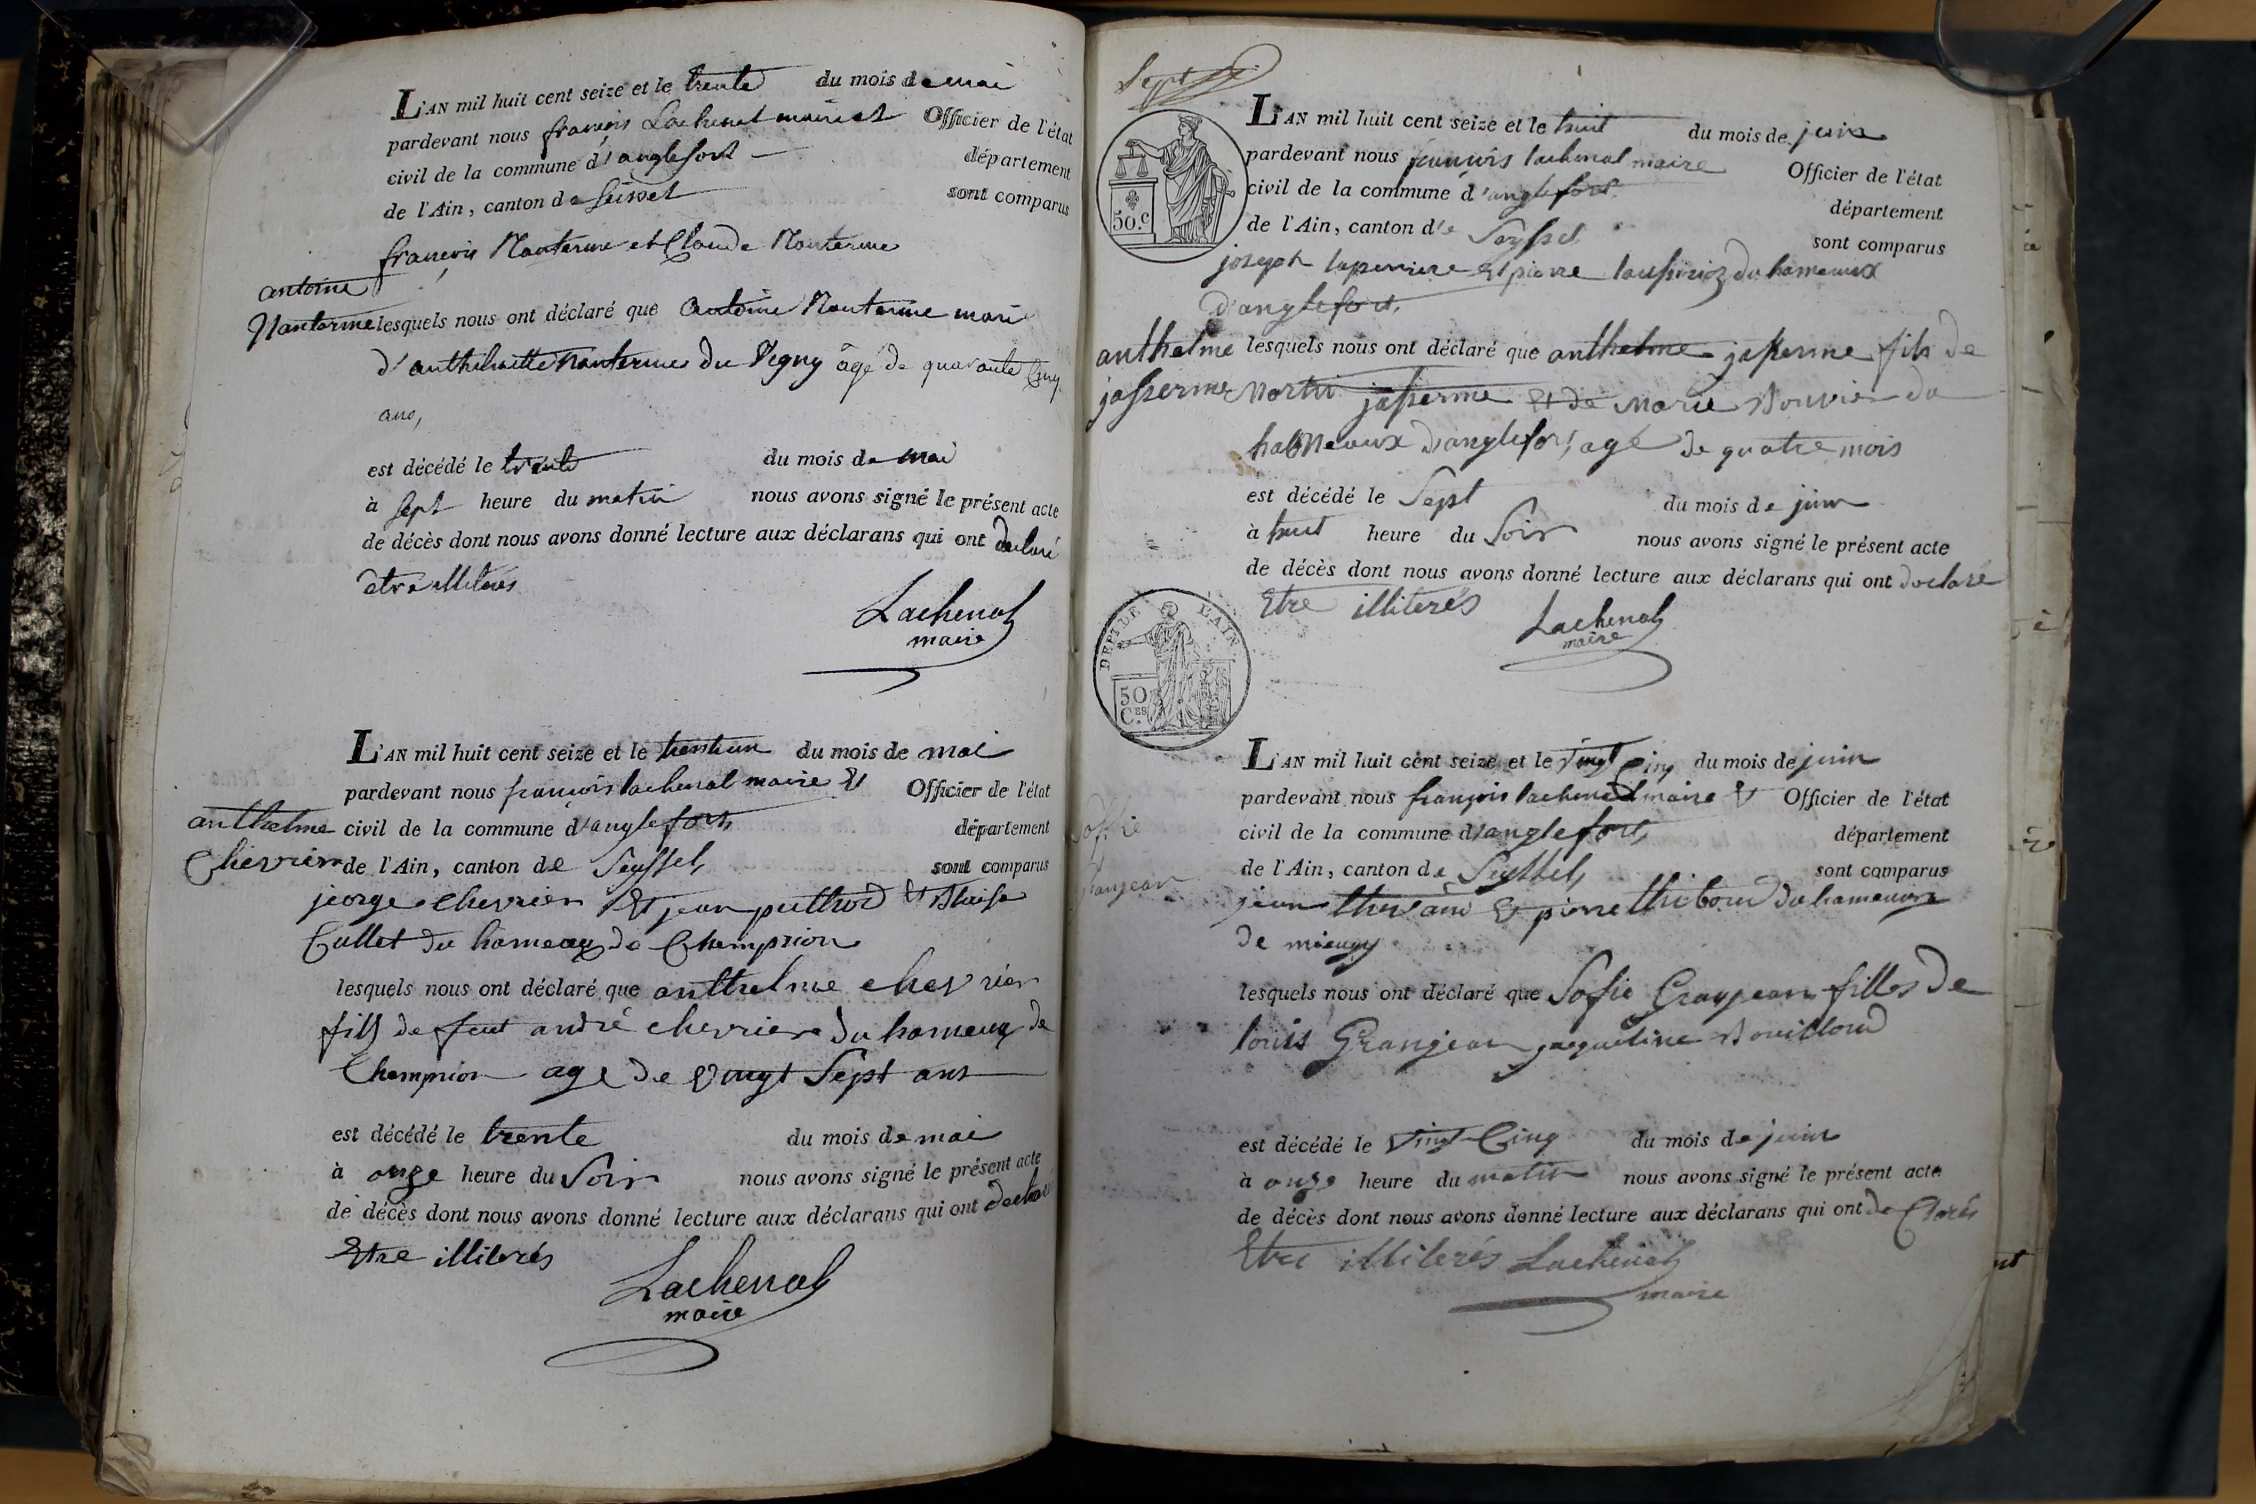 L'AN mil huit cent seize et le trente du mois de mai
pardevant nous françois Lachenal maire et Officier de l'état
civil de la commune d'anglefort département
de l'Ain, canton de Seissel sont comparus
françois Nanterme et Claude Nanterme
antoine
Nanterme lesquels nous ont déclaré que antoine Nanterme mari
d'anthelmette Nanterme du Vegny âgé de quarante Cinq
ans,
est décédé le trente du mois de mai
à sept heure du matin nous avons signé le présent acte
de décès dont nous avons donné lecture aux déclarans qui ont declaré
être illiterés
Lachenal
maire
L'AN mil huit cent seize et le trentun du mois de mai
pardevant nous françois lachenal maire Et Officier de l'état
anthelme civil de la commune d'anglefort département
Chevrier de l'Ain, canton de Seyssel sont comparus
jeorge chevrier Et jean puthod Et Blaise
Callet du hameaux de Champrion
lesquels nous ont déclaré que anthelme chevrier
fils de feut andré chevrier du hameaux de
Champrion age de vingt Sept ans
est décédé le trente du mois de mai
à onze heure du Soir nous avons signé le présent acte
de décès dont nous avons donné lecture aux déclarans qui ont declaré
Etre illiterés
Lachenal
maire
Sept
L'AN mil huit cent seize et le huit du mois de juin
pardevant nous françois lachenal maire Officier de l'état
civil de la commune d'anglefort département
50.c
de l'Ain, canton de Seyssel sont comparus
joseph laperriere Et pierre du hameaux
d'anglefort
anthelme lesquels nous ont déclaré que anthelme jasserme fils de
jasserme Martin jasserme Et de Marie Bouvier du
hameaux d'anglefort agé de quatre mois
est décédé le Sept du mois de juin
à huit heure du Soir nous avons signé le présent acte
de décès dont nous avons donné lecture aux déclarans qui ont declaré
Etre illiterés
Lachenal
maire
DEP.T DE L'AIN.
50
C.ES
L'AN mil huit cent seize et le vingt Cinq du mois de juin
pardevant nous françois lachenal maire Et Officier de l'état
civil de la commune d'anglefort département
Soffie
de l'Ain, canton de Seyssel sont comparus
Granjean
jean Et pierre thiboud du hameaux
de mieugy
lesquels nous ont déclaré que Sofie Granjean filles de
louis Granjean jacqueline Bouilloud
est décédé le vingt Cinq du mois de juin
à onze heure du matin nous avons signé le présent acte
de décès dont nous avons donné lecture aux déclarans qui ont de Clarés
Etre illiterés Lachenal
maire